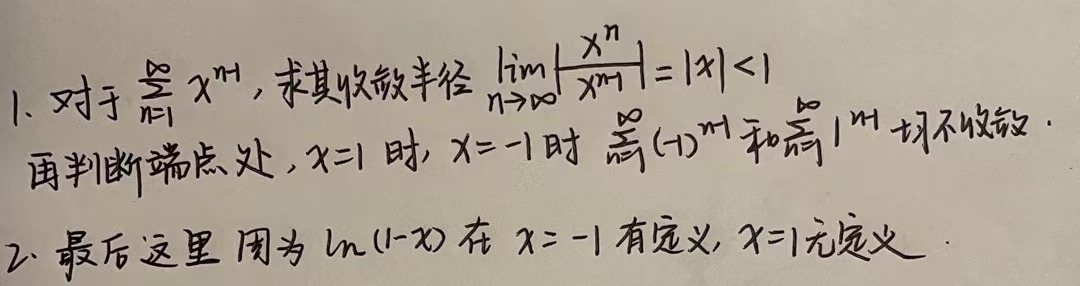 1. 对于 $\sum_{n=1}^{\infty} x^{n-1}$, 求其收敛半径 $\lim_{n\to\infty}\left|\frac{x^n}{x^{n-1}}\right|=|x|<1$
再判断端点处, x=1 时, x=-1 时 $\sum_{n=1}^{\infty}(-1)^{n-1}$ 和 $\sum_{n=1}^{\infty}1^{n-1}$ 均不收敛.
2. 最后这里 因为 ln(1-x) 在 x=-1 有定义, x=1无定义.